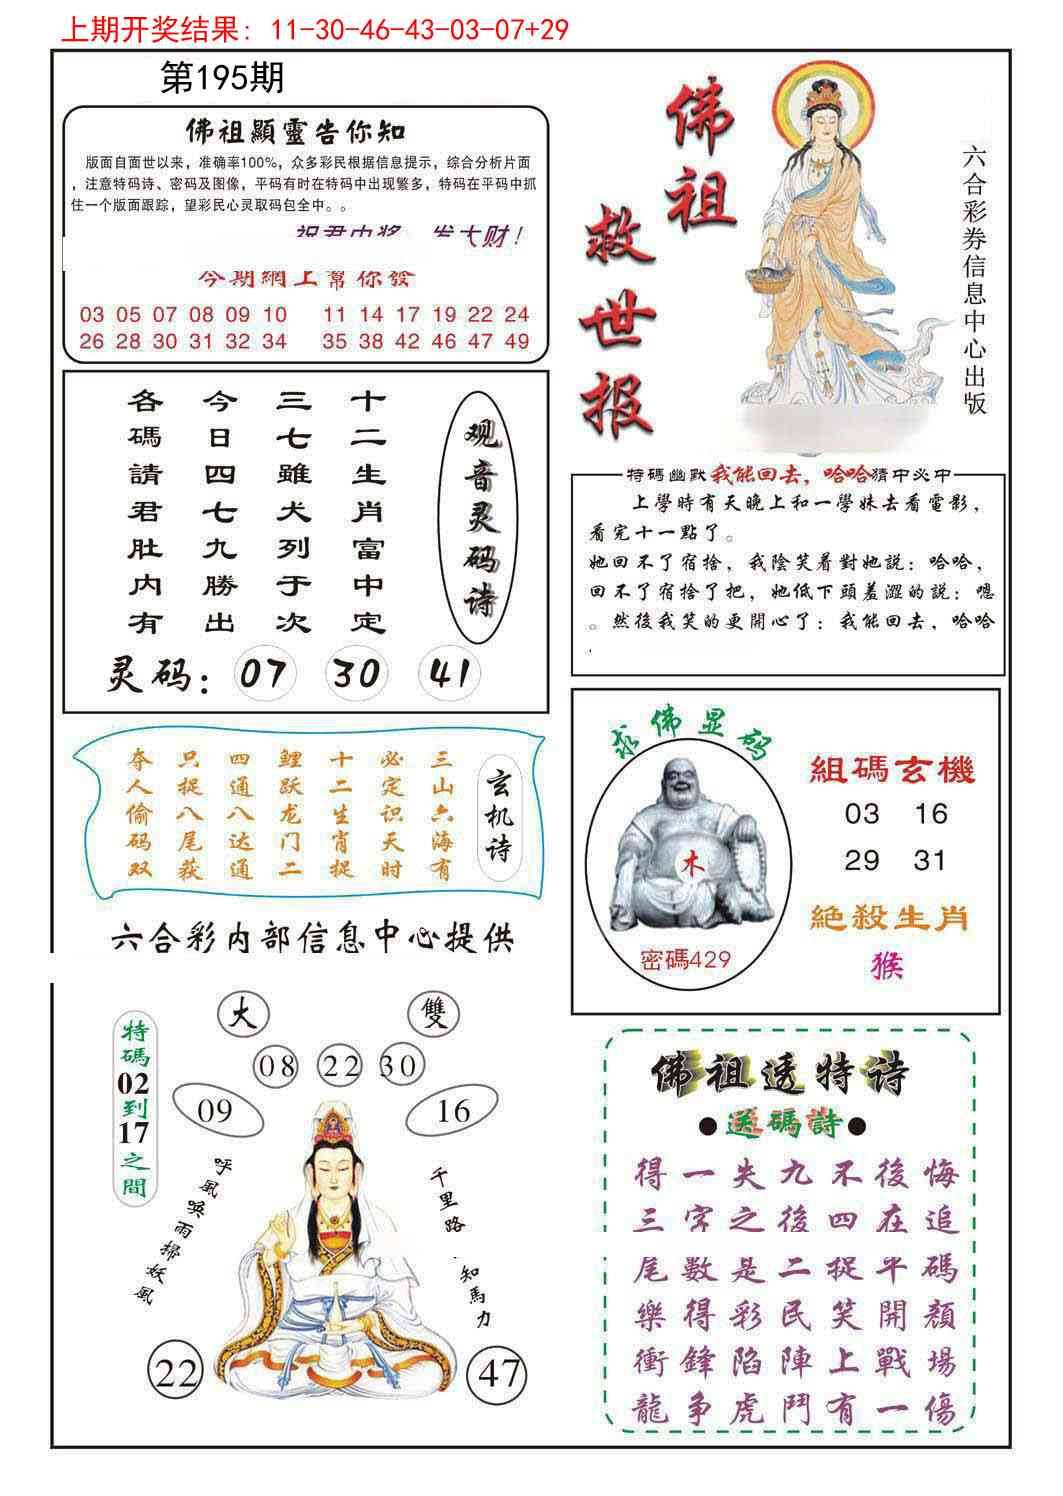 上期开奖结果: 11-30-46-43-03-07+29
第195期
佛祖顯靈告你知
版面自面世以来，准确率100%，众多彩民根据信息提示，综合分析片面
，注意特码诗、密码及图像，平码有时在特码中出现繁多，特码在平码中抓
住一个版面跟踪，望彩民心灵取码包全中。。
祝君中奖 发大财！
今期網上幫你發
03 05 07 08 09 10 11 14 17 19 22 24
26 28 30 31 32 34 35 38 42 46 47 49
佛祖
救世报
六合彩券信息中心出版
观音灵码诗
十二生肖富中定
三七雖犬列于次
今日四七九勝出
各碼請君肚内有
灵码：07 30 41
特碼幽默我能回去，哈哈猜中必中
上學時有天晚上和一學妹去看電影，
看完十一點了。
她回不了宿捨，我陰笑着對她説：哈哈，
回不了宿捨了把，她低下頭羞澀的説：嗯
。然後我笑的更開心了：我能回去，哈哈
.
玄机诗
三山六海有
必定识天时
十二生肖捉
鲤跃龙门二
四通八达通
只捉八尾获
夺人偷码双
六合彩内部信息中心提供
求佛显码
木
密碼429
組碼玄機
03 16
29 31
絶殺生肖
猴
大 雙
08 22 30
09 16
特碼02到17之間
呼風唤雨掃妖風
千里路 知馬力
22 47
佛祖透特诗
●送碼詩●
得一失九不後悔
三字之後四在追
尾數是二捉平碼
樂得彩民笑開顏
衝鋒陷陣上戰場
龍争虎鬥有一傷